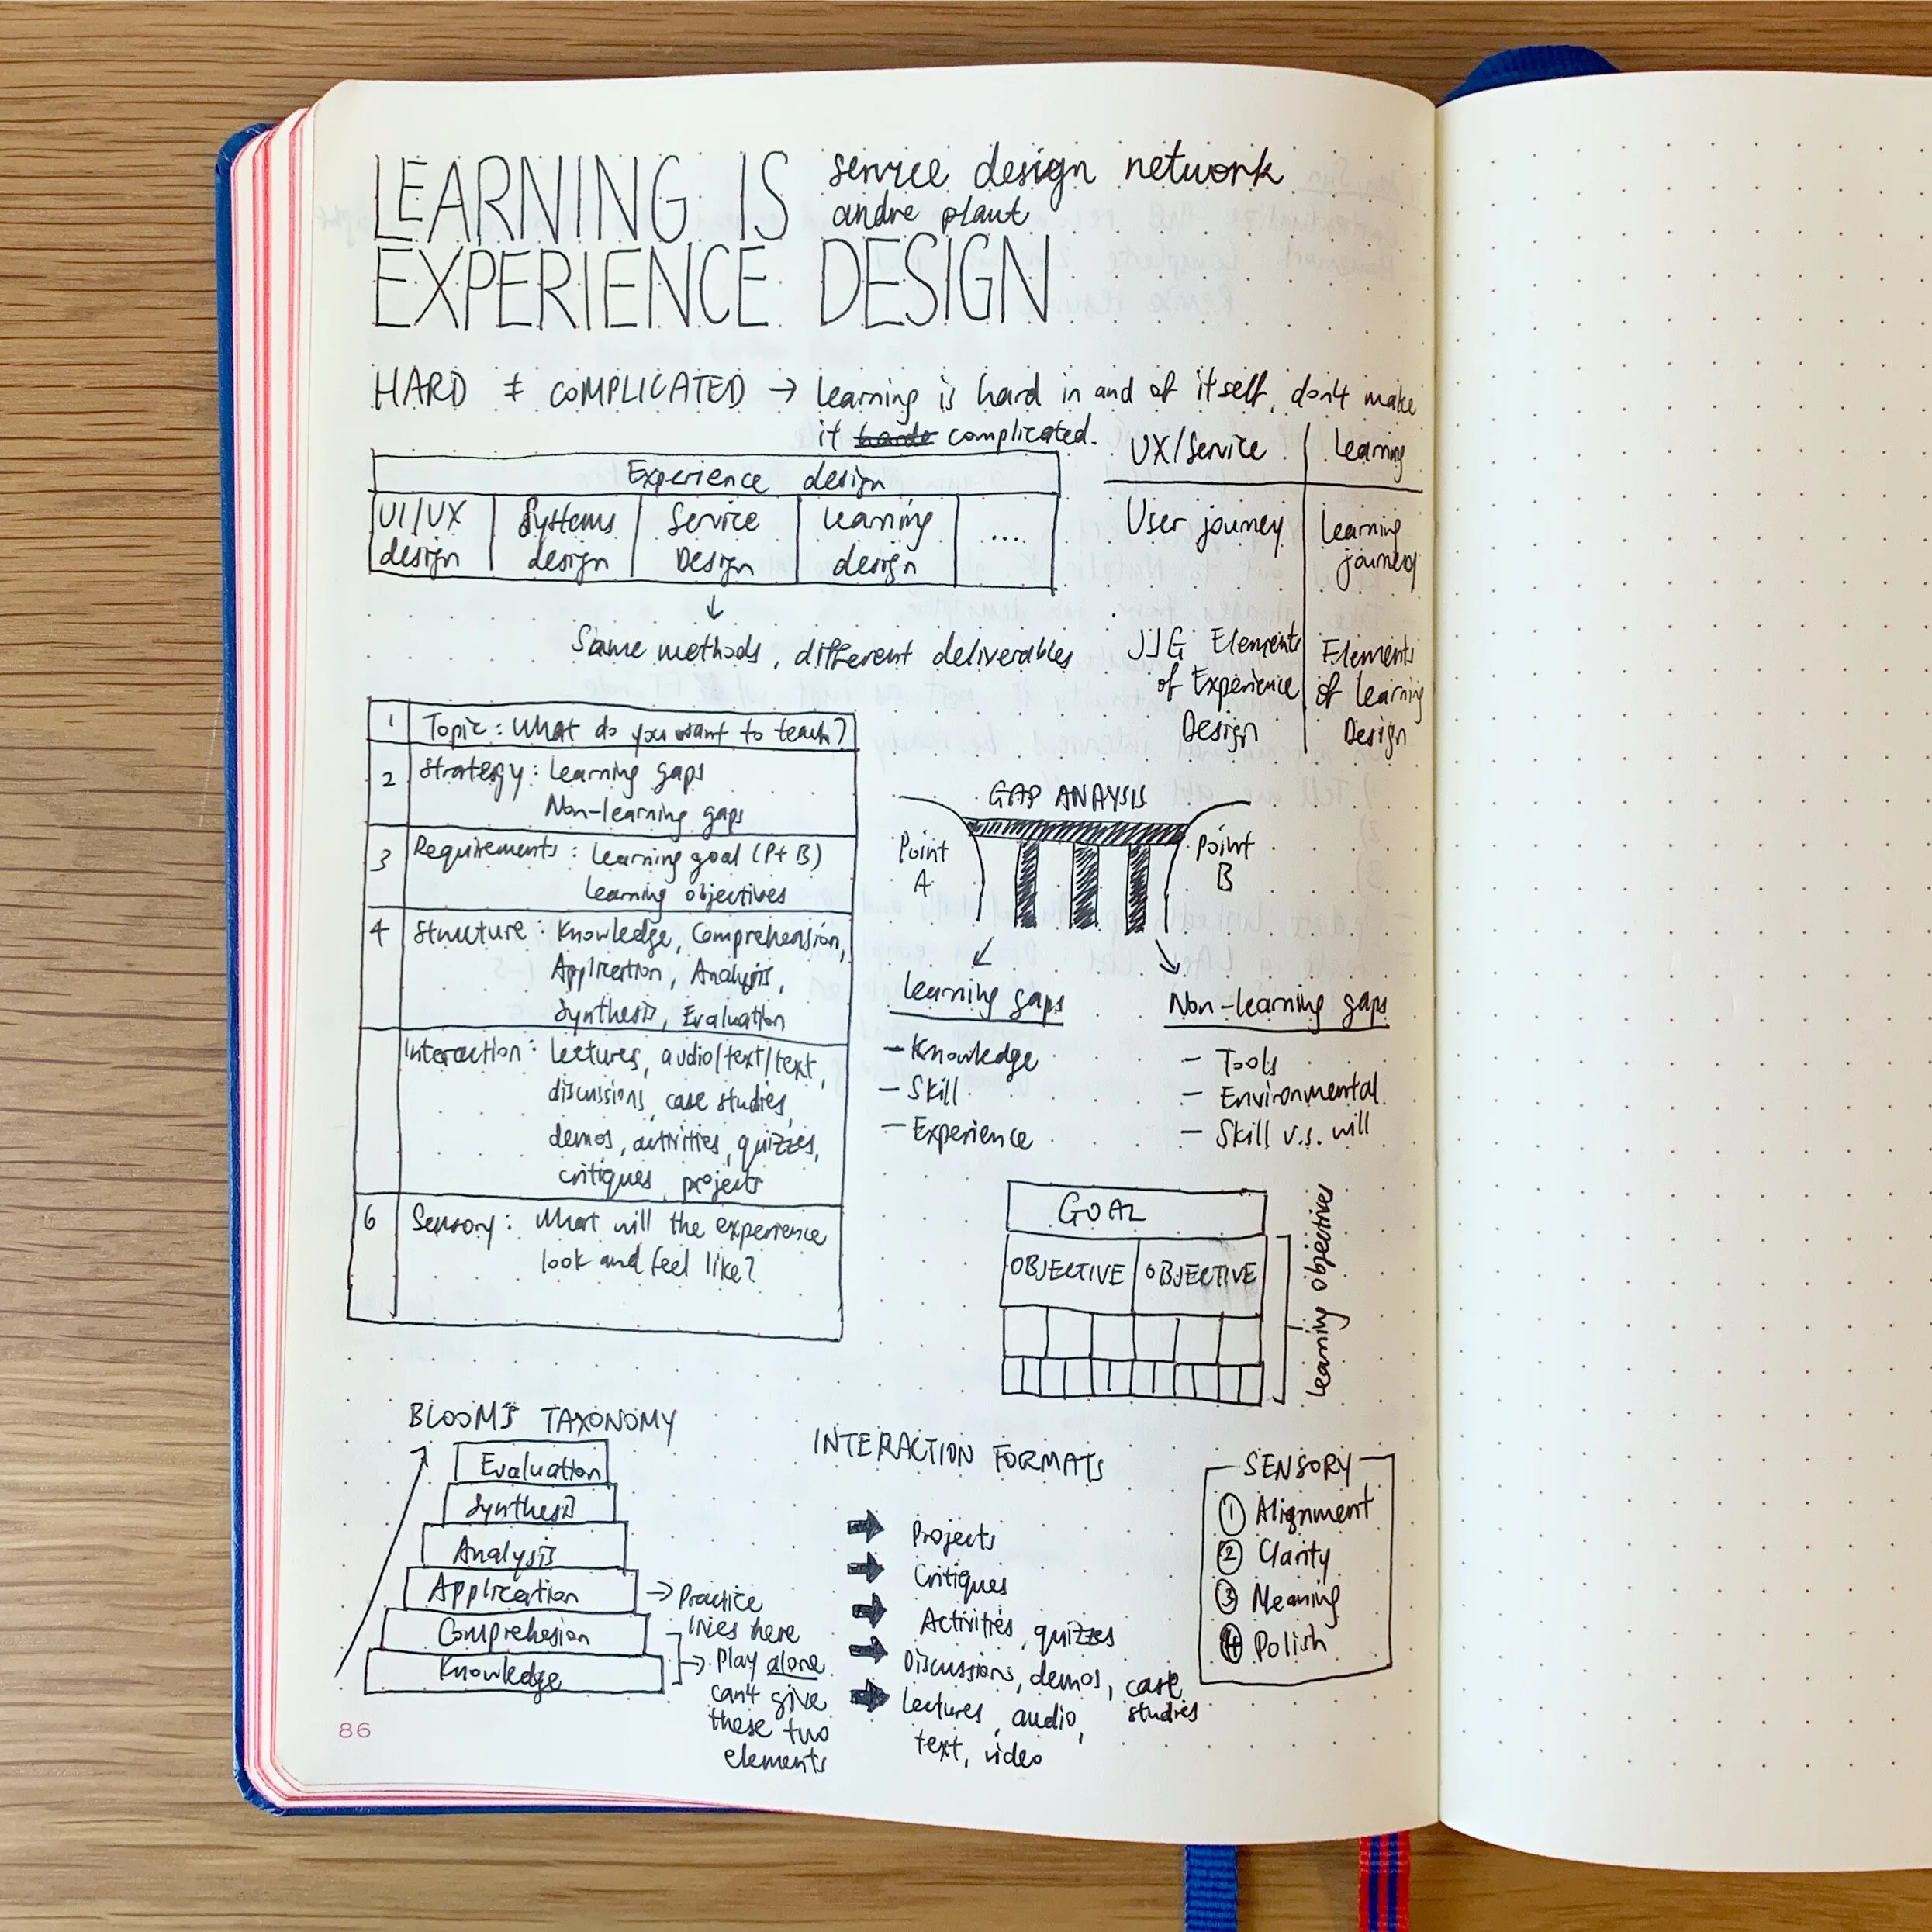 LEARNING IS
EXPERIENCE DESIGN
service design network
andre plaut
HARD ≠ COMPLICATED → Learning is hard in and of itself, don't make
it harde complicated.
Experience design
UI/UX
design
Systems
design
Service
Design
Learning
design
....
↓
Same methods, different deliverables
UX/Service
Learning
User journey
Learning
journey
JJG Elements
of Experience
Design
Elements
of Learning
Design
1 Topic: What do you want to teach?
2 Strategy: Learning gaps
Non-learning gaps
3 Requirements: Learning goal (Pt B)
Learning objectives
4 Structure: Knowledge, Comprehension,
Application, Analysis,
Synthesis, Evaluation
Interaction: Lectures, audio/text/text,
discussions, case studies,
demos, activities, quizzes,
critiques, projects
6 Sensory: What will the experience
look and feel like?
GAP ANAYSIS
Point
A
Point
B
Learning gaps
- Knowledge
- Skill
- Experience
Non-learning gaps
- Tools
- Environmental
- Skill v.s. will
GOAL
OBJECTIVE
OBJECTIVE
Learning objectives
BLOOM'S TAXONOMY
Evaluation
Synthesis
Analysis
Application
Comprehesion
Knowledge
→ Practice
lries here
→ Play alone
can't give
these two
elements
INTERACTION FORMATS
Projects
Critiques
Activities, quizzes
Discussions, demos, case
studies
Lectures, audio,
text, video
SENSORY
1 Alignment
2 Clarity
3 Meaning
4 Polish
86